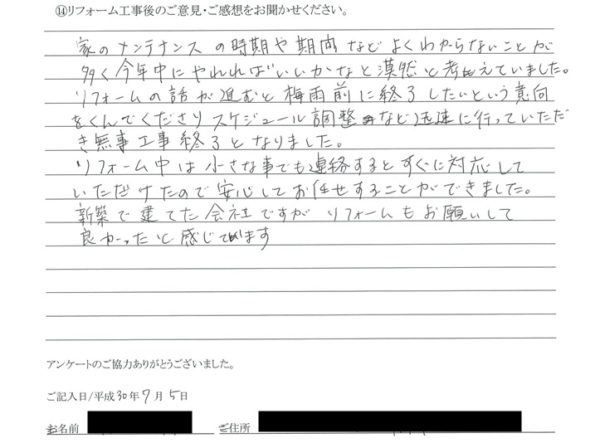 ⑭リフォーム工事後のご意見・ご感想をお聞かせください。
家のメンテナンスの時期や期間などよくわからないことが
多く今年中にやれればいいかなと漠然と考えていました。
リフォームの話が進むと梅雨前に終了したいという意向
をくんでくださりスケジュール調整など迅速に行っていただ
き無事工事終了となりました。
リフォーム中は小さな事でも連絡するとすぐに対応して
いただけたので安心してお任せすることができました。
新築で建てた会社ですがリフォームもお願いして
良かったと感じてます
アンケートのご協力ありがとうございました。
ご記入日/平成30年7月5日
お名前 ご住所